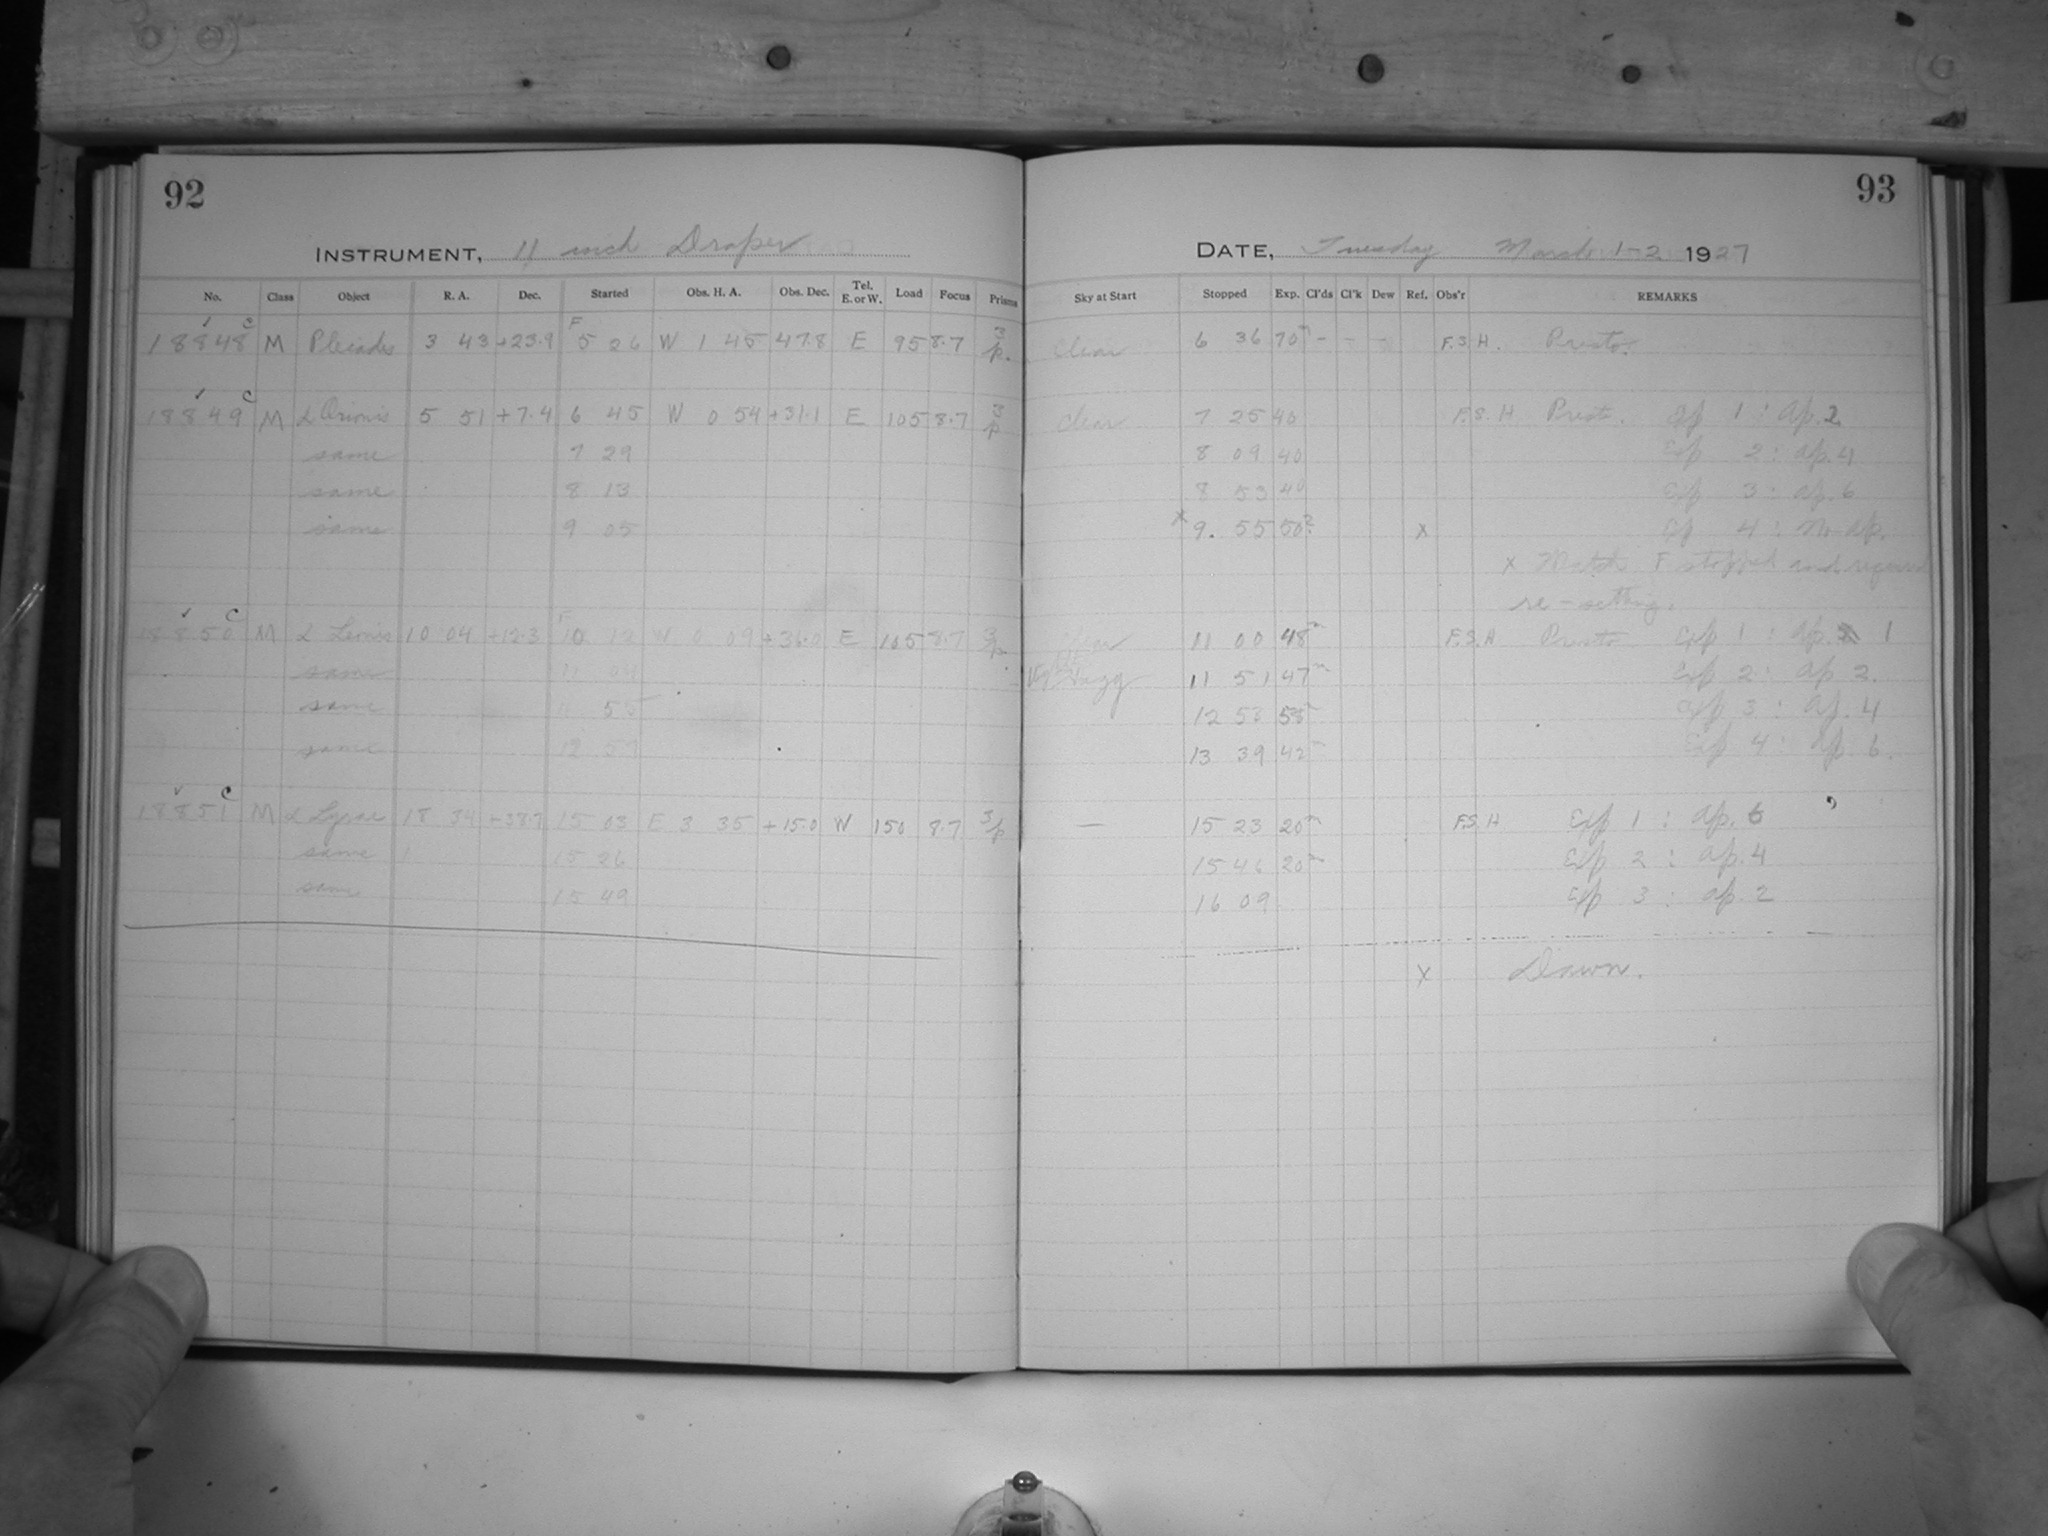 92
INSTRUMENT, 11 inch Draper
No. Class Object R. A. Dec. Started Obs. H. A. Obs. Dec. Tel. E. or W. Load Focus Prisms
18848 c M Pleiades 3 43 +23.9 F 5 26 W 1 45 +47.8 E 95 8.7 3 p.
18849 c M α Orionis 5 51 +7.4 6 45 W 0 54 +31.1 E 105 8.7 3 p
same 7 29
same 8 13
same 9 05
18850 c M α Leonis 10 04 +12.3 F 10 12 W 0 09 +36.0 E 105 8.7 3 p
same 11 04
same 11 55
same 12 57
18851 c M α Lyrae 18 34 +38.7 15 03 E 3 35 +15.0 W 150 8.7 3 p
same 15 26
same 15 49
93
DATE, Tuesday March 1-2 1927
Sky at Start Stopped Exp. Cl'ds Cl'k Dew Ref. Obs'r REMARKS
Clear 6 36 70m - - - F.S.H. Presto.
Clear 7 25 40 F.S.H Presto. Exp 1 : Ap. 2
8 09 40 Exp 2 : Ap. 4
8 53 40 Exp 3 : Ap. 6
x 9. 55 50? x Exp 4 : No Ap.
x Watch F stopped and required
re-setting.
Clear 11 00 48m F.S.H Presto Exp 1 : Ap. 1
Hazy 11 51 47m Exp 2 : Ap 2.
12 53 58m Exp 3 : Ap. 4
13 39 42m Exp 4 : Ap 6.
— 15 23 20m F.S.H Exp 1 : Ap. 6
15 46 20m Exp 2 : Ap. 4
16 09 Exp 3 : Ap. 2
x Dawn.